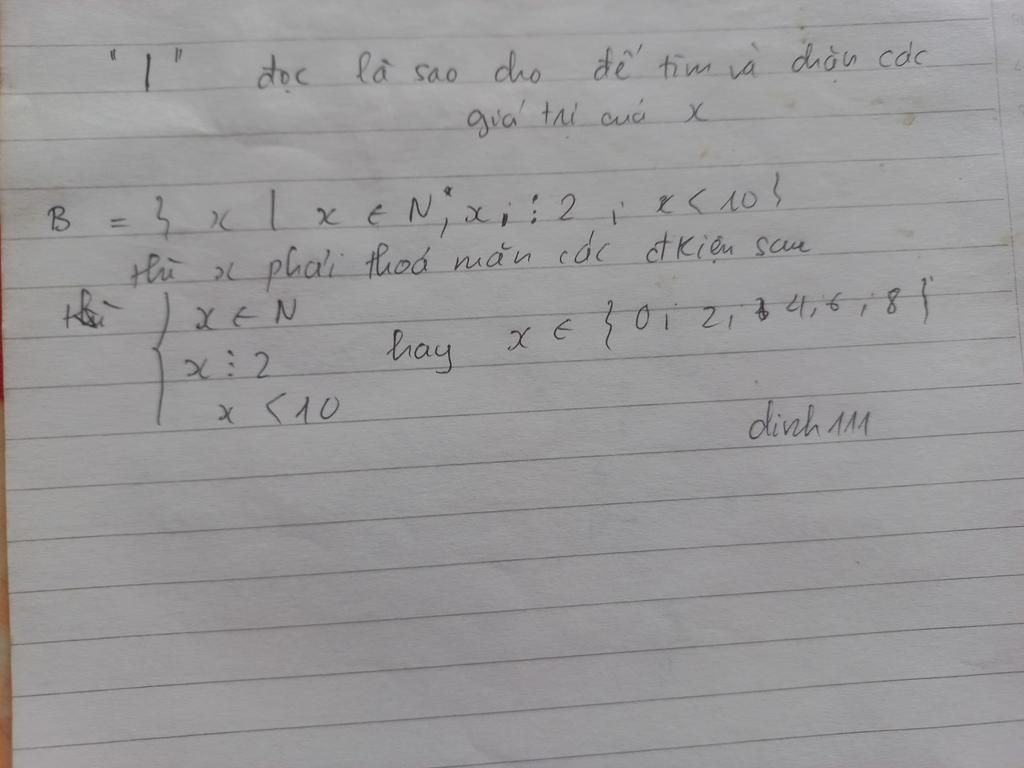 "|" đọc là sao cho để tìm và chọn các
giá trị của x
B = } x | x ∈ N*, x ; ⋮ 2 ; x < 10 }
thì x phải thoả mãn các đkiện sau
thì { x ∈ N
x ⋮ 2 hay x ∈ { 0 ; 2 ; 4 ; 6 ; 8 }
x < 10
dinh 111